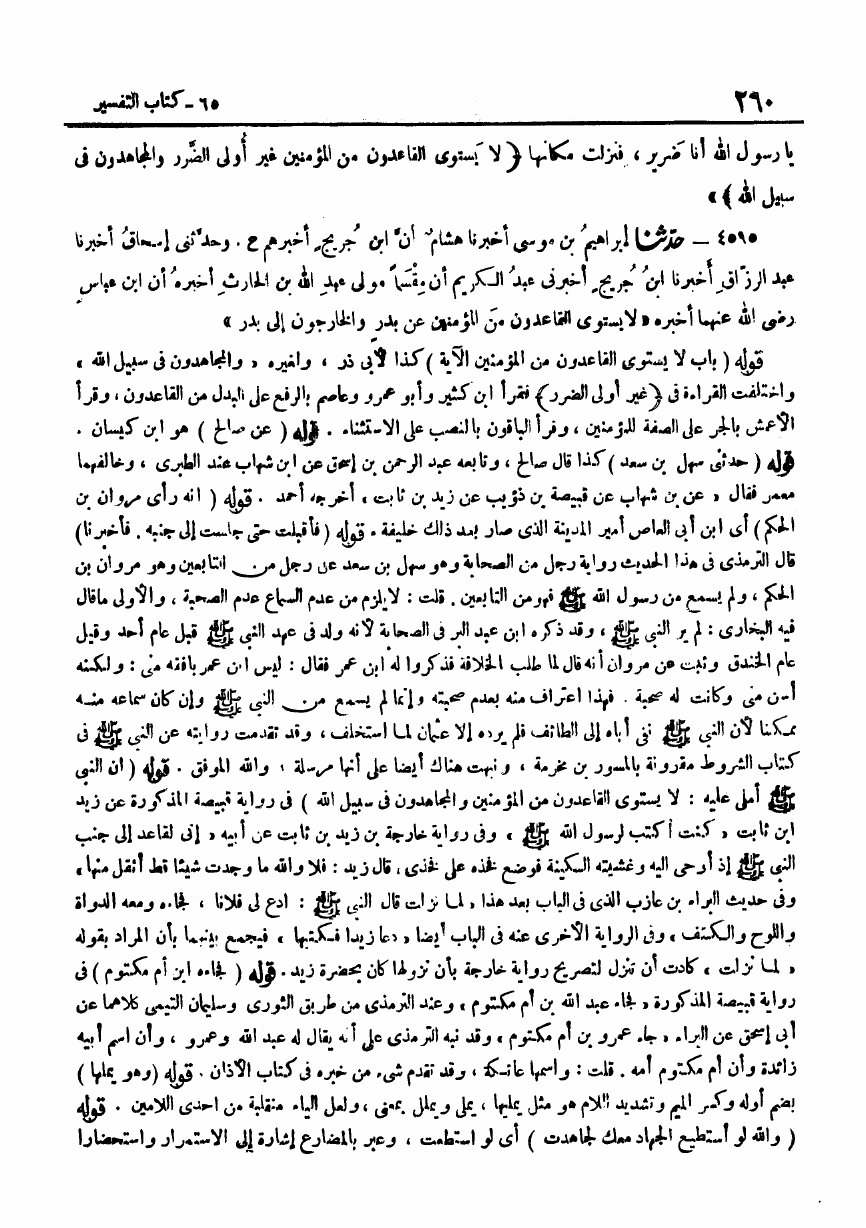 ٢٦٠
٦٥ - كتاب التفسير
يا رسول الله أنا ضرير ، فنزلت مكانها ﴿ لا يَستوى القاعدون من المؤمنين غير أُولى الضَّرر والمجاهدون فى
سبيل الله ﴾ »
٤٥٩٥ – حدّثنا إبراهيمُ بن موسى أخبرنا هشامٌ أنَّ ابن جُريجٍ أخبرهم ح . وحدَّثنى إسحاقُ أخبرنا
عبد الرزّاقِ أَخبرنا ابنُ جُريجٍ أخبرنى عبدُ الكريم أن مِقْسَماً مولى عبدِ الله بن الحارثِ أخبرهُ أن ابن عباسٍ
رضى الله عنهما أخبره « لا يستوى القاعدون منَ المؤمنين عن بدرٍ والخارجون إلى بدر »
قوله ( باب لا يستوى القاعدون من المؤمنين الآية ) كذا لأبى ذر ، ولغيره « والمجاهدون فى سبيل الله »
واختلفت القراءة فى ﴿غير أولى الضرر﴾ فقرأ ابن كثير وأبو عمرو وعاصم بالرفع على البدل من القاعدون ، وقرأ
الأعمش بالجر على الصفة للمؤمنين ، وقرأ الباقون بالنصب على الاستثناء . قوله ( عن صالح ) هو ابن كيسان .
قوله ( حدثنى سهل بن سعد ) كذا قال صالح ، وتابعه عبد الرحمن بن إسحق عن ابن شهاب عند الطبرى ، وخالفهما
معمر فقال « عن بن شهاب عن قبيصة بن ذؤيب عن زيد بن ثابت » أخرجه أحمد . قوله ( انه رأى مروان بن
الحكم ) أى ابن أبى العاص أمير المدينة الذى صار بعد ذلك خليفة . قوله ( فأقبلت حتى جلست إلى جنبه . فأخبرنا )
قال الترمذى فى هذا الحديث رواية رجل من الصحابة وهو سهل بن سعد عن رجل من التابعين وهو مروان بن
الحكم ، ولم يسمع من رسول الله ﷺ فهو من التابعين . قلت : لا يلزم من عدم السماع عدم الصحبة ، والأولى ماقال
فيه البخارى : لم ير النبى ﷺ ، وقد ذكره ابن عبد البر فى الصحابة لأنه ولد فى عهد النبى ﷺ قبل عام أحد وقيل
عام الخندق وثبت عن مروان أنه قال لما طلب الخلافة فذكروا له ابن عمر فقال : ليس ابن عمر بافقه منى : ولكنه
أسن منى وكانت له صحبة . فهذا اعتراف منه بعدم صحبته وإنما لم يسمع من النبى ﷺ وإن كان سماعه منه
ممكنا لأن النبى ﷺ نفى أباه إلى الطائف فلم يرده إلا عثمان لما استخلف ، وقد تقدمت روايته عن النبى ﷺ فى
كتاب الشروط مقرونة بالمسور بن مخرمة ، ونبهت هناك أيضا على أنها مرسلة ، والله الموفق . قوله ( ان النبى
ﷺ أملى عليه : لا يستوى القاعدون من المؤمنين والمجاهدون فى سبيل الله ) فى رواية قبيصة المذكورة عن زيد
ابن ثابت « كنت أكتب لرسول الله ﷺ » وفى رواية خارجة بن زيد بن ثابت عن أبيه « إنى لقاعد إلى جنب
النبى ﷺ إذ أوحى اليه وغشيته السكينة فوضع فخذه على فخذى ، قال زيد : فلا والله ما وجدت شيئا قط أثقل منها »
وفى حديث البراء بن عازب الذى فى الباب بعد هذا « لما نزلت قال النبى ﷺ : ادع لى فلانا ، فجاءه ومعه الدواة
واللوح والكتف » وفى الرواية الأخرى عنه فى الباب أيضا « دعا زيدا فكتبها » فيجمع بينهما بأن المراد بقوله
« لما نزلت » كادت أن تنزل لتصريح رواية خارجة بأن نزولها كان بحضرة زيد . قوله ( فجاءه ابن أم مكتوم ) فى
رواية قبيصة المذكورة « فجاء عبد الله بن أم مكتوم » وعند الترمذى من طريق الثورى وسليمان التيمى كلاهما عن
أبى إسحق عن البراء « جاء عمرو بن أم مكتوم » وقد نبه الترمذى على أنه يقال له عبد الله وعمرو ، وأن اسم أبيه
زائدة وأن أم مكتوم أمه . قلت : واسمها عاتكة ، وقد تقدم شىء من خبره فى كتاب الأذان . قوله ( وهو يملها )
بضم أوله وكسر الميم وتشديد اللام هو مثل يمليها ، يملى ويملل بمعنى ، ولعل الياء منقلبة من احدى اللامين . قوله
( والله لو أستطيع الجهاد معك لجاهدت ) أى لو استطعت ، وعبر بالمضارع إشارة إلى الاستمرار واستحضارا